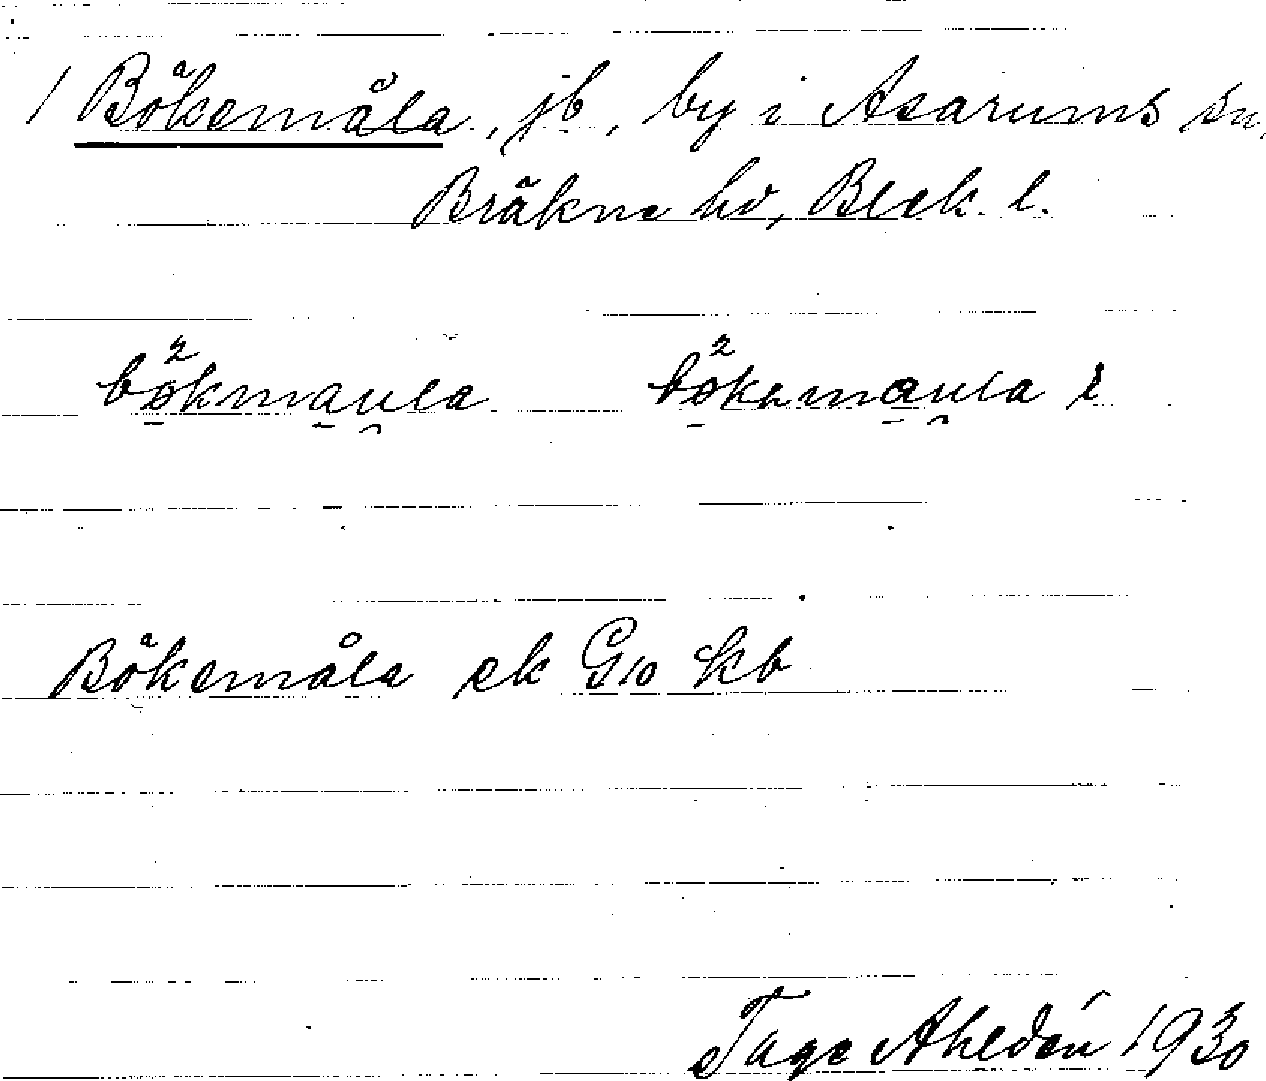 1 Bökemåla, jb, by i Asarums sn,
Bräkne hd, Blek. l.
bö²kmau̯la bö²kemau̯la l
Bökemåla ek G10 kb
Tage Ahldén 1930